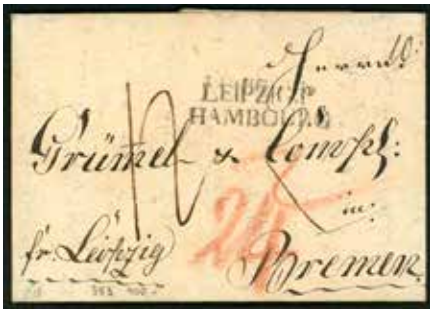 Herrn
LEIPZIG
HAMBOURG
Grümel & Comp:
12
24
in
fr. Leipzig
Bremen